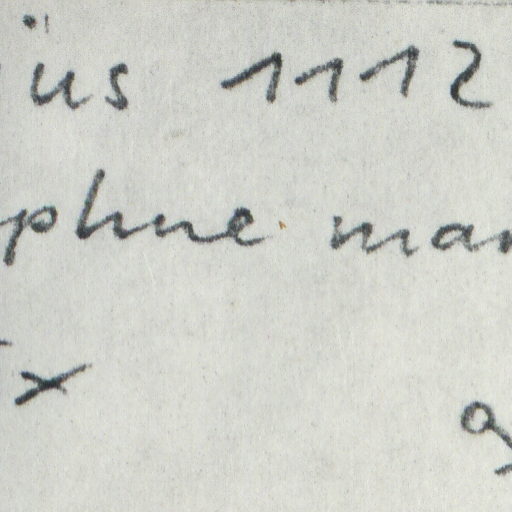 üs 1112
phne mar
x
a